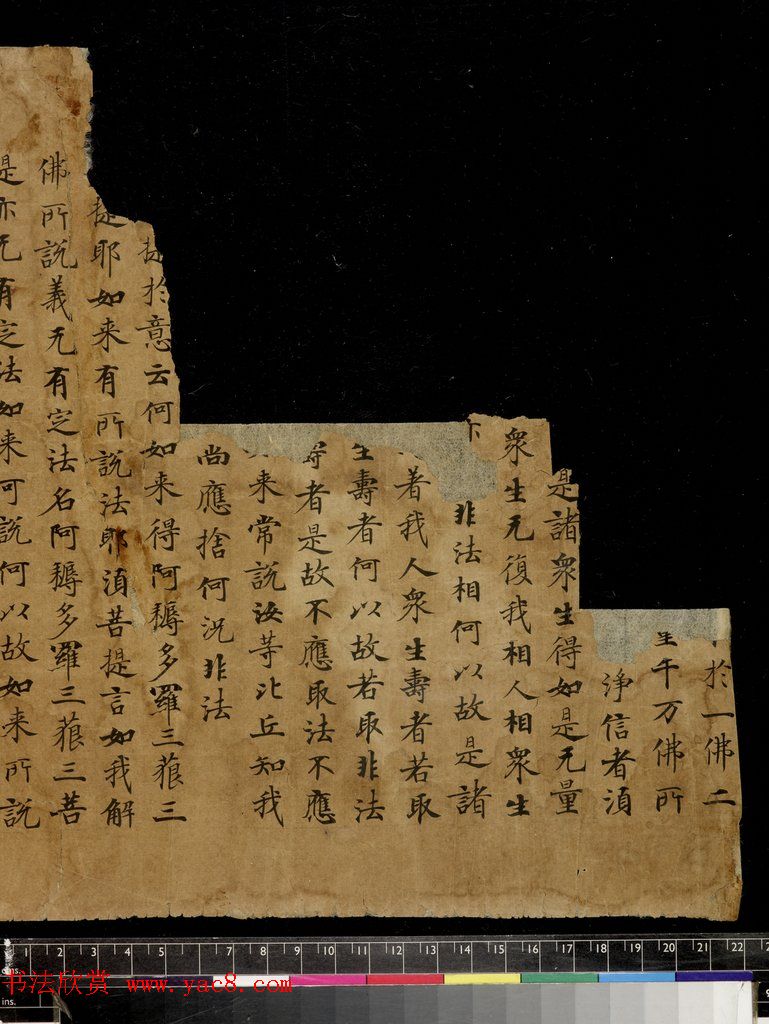 於一佛二
千万佛所
淨信者湏
是諸衆生得如是无量
衆生无復我相人相衆生
非法相何以故是諸
著我人衆生壽者若取
生壽者何以故若取非法
者是故不應取法不應
来常說汝等比丘知我
尚應捨何況非法
提於意云何如来得阿耨多羅三藐三
提耶如来有所說法耶湏菩提言如我解
佛所說義无有定法名阿耨多羅三藐三菩
是亦无有定法如来可說何以故如来所說
1 2 3 4 5 7 8 9 10 11 12 13 14 15 16 17 18 19 20 21 22
cms.
ins.
书法欣赏 www.yac8.com